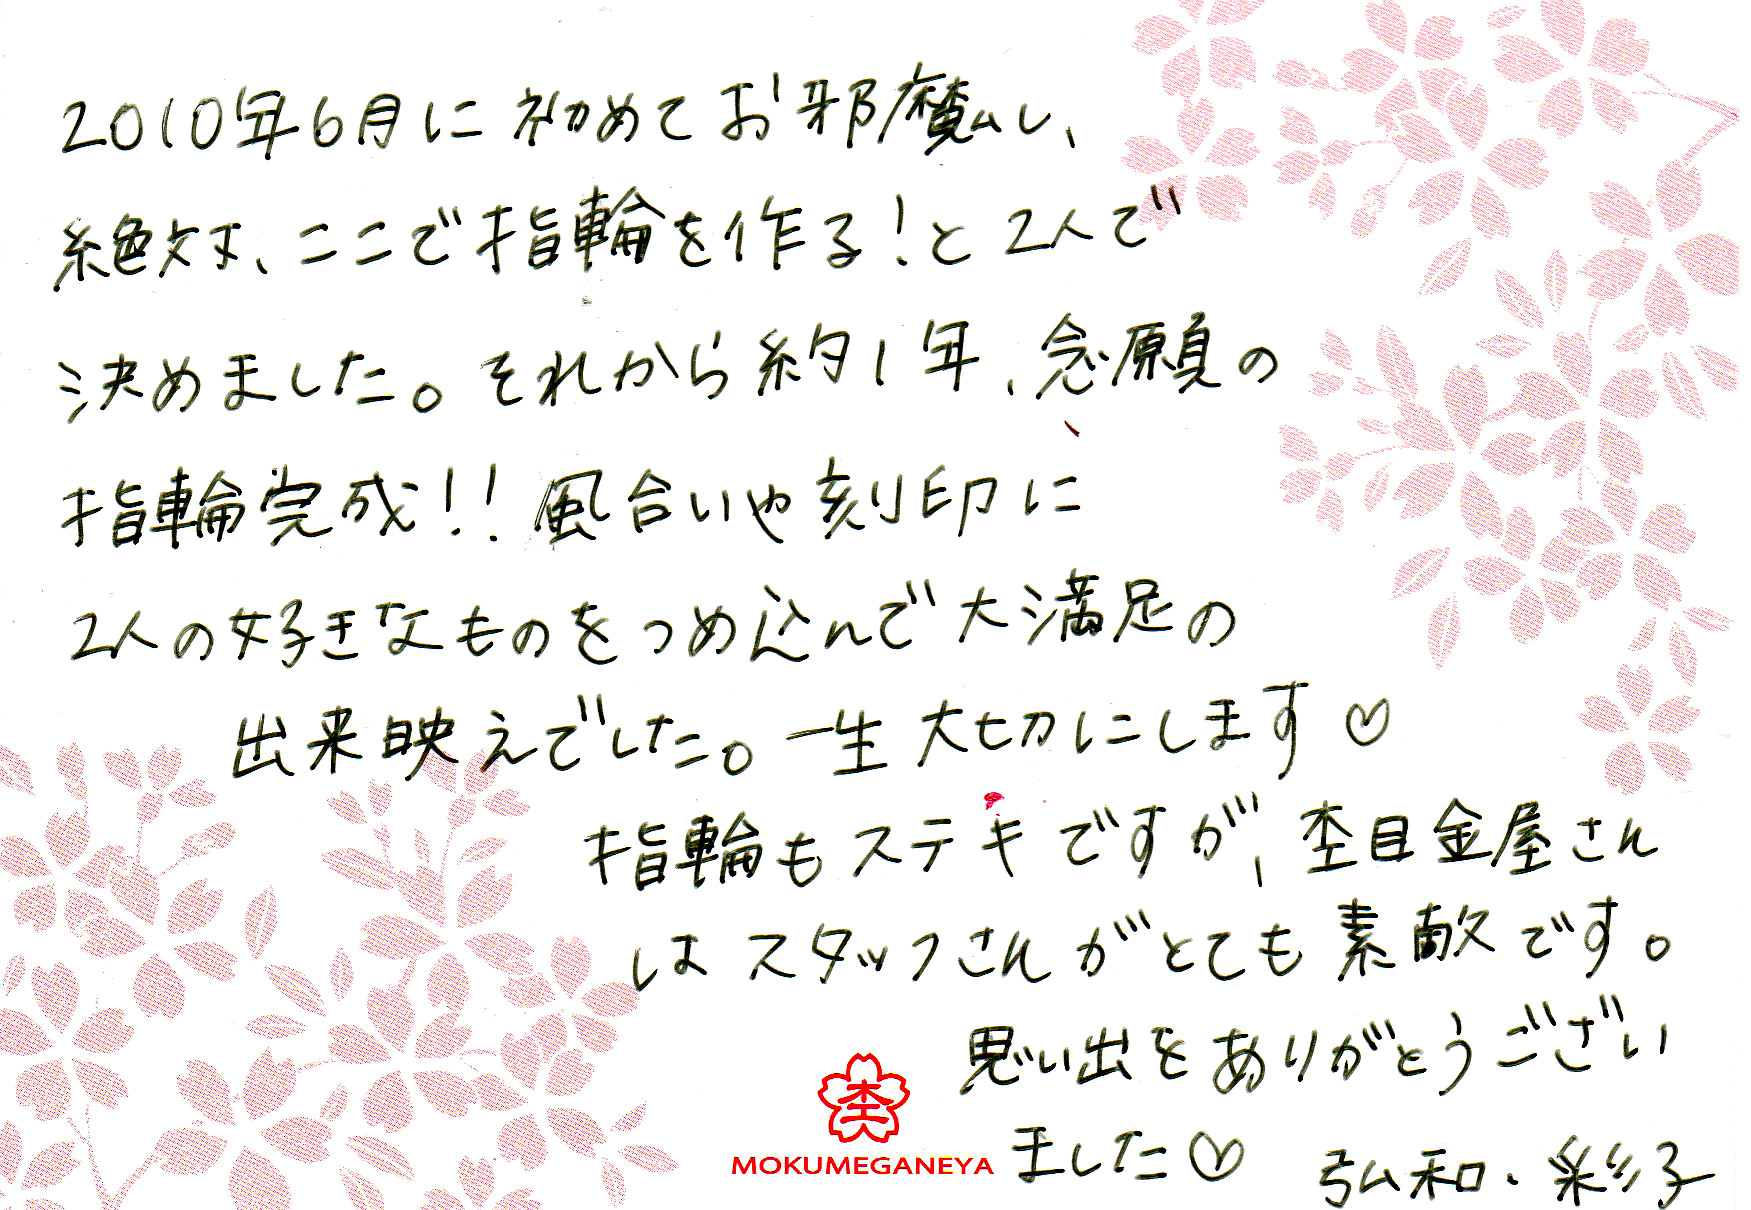 2010年6月に初めてお邪魔し、
絶対、ここで指輪を作る!と2人で
決めました。それから約1年、念願の
指輪完成!!風合いや刻印に
2人の好きなものをつめ込んで大満足の
出来映えでした。一生大切にします♡
指輪もステキですが、杢目金屋さん
はスタッフさんがとても素敵です。
思い出をありがとうござい
ました♡
弘和・彩子
杢
MOKUMEGANEYA